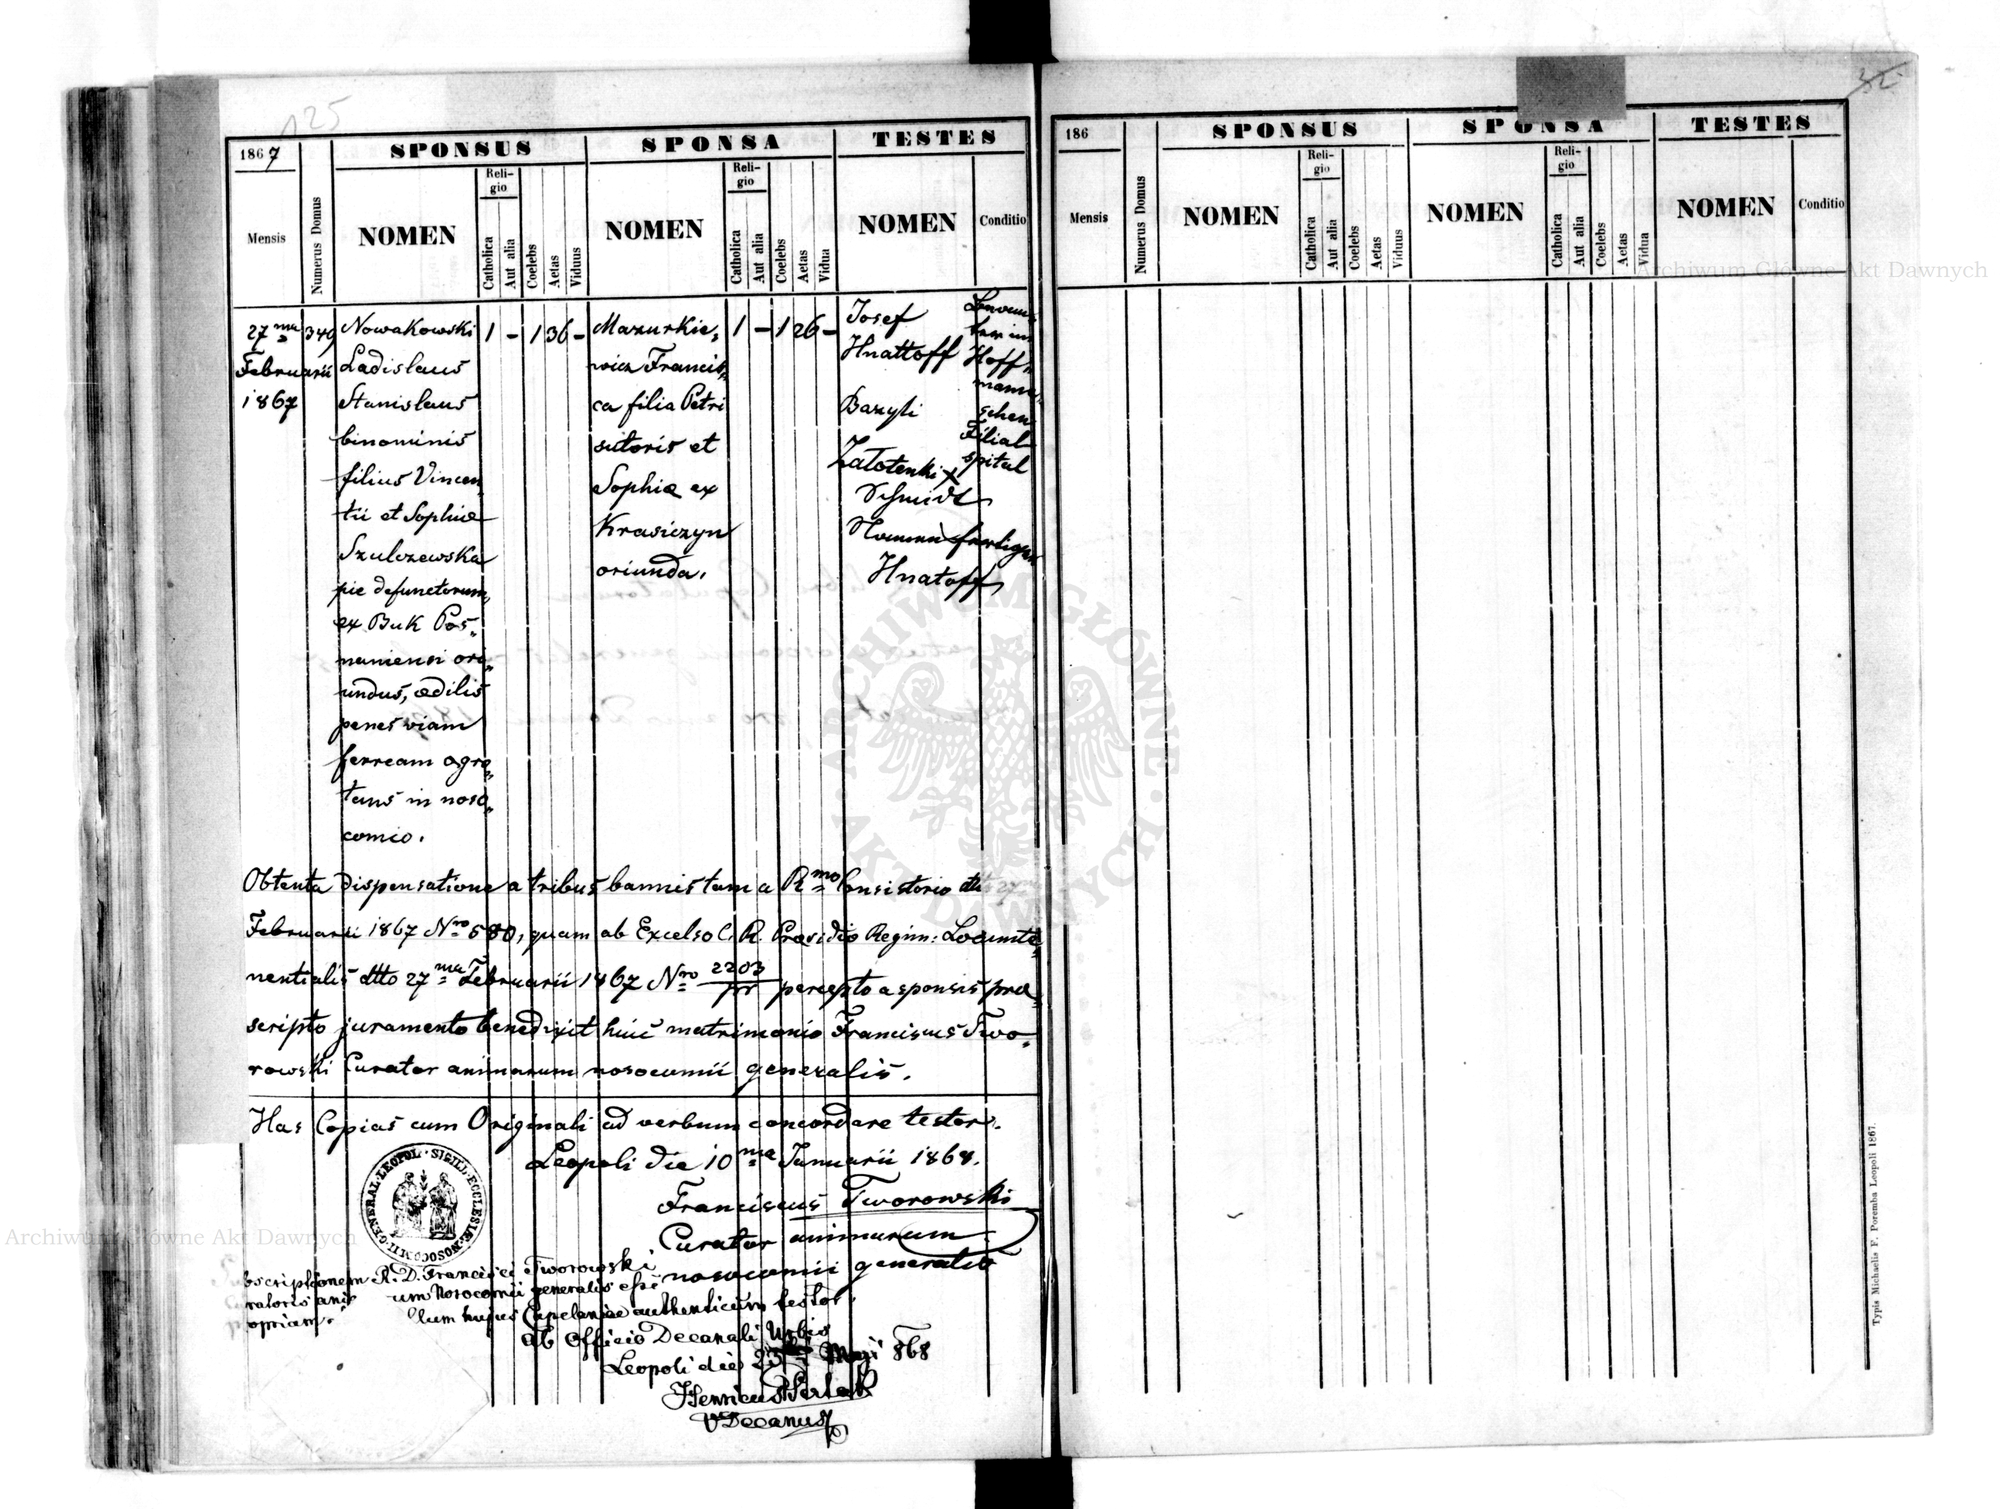 125
1867
Mensis
Numerus Domus
SPONSUS
NOMEN
Reli-
gio
Catholica
Aut alia
Coelebs
Aetas
Viduus
SPONSA
NOMEN
Reli-
gio
Catholica
Aut alia
Coelebs
Aetas
Vidua
TESTES
NOMEN
Conditio
27ma
Februarii
1867
349
Nowakowski
Ladislaus
Stanislaus
binominis
filius Vincen„
tii et Sophiæ
Szulczewska
pie defunctorum,
ex Buk Pos„
naniensi ori„
undus, ædilis
penes viam
ferream ægro„
tans in noso„
comio.
1 - 1 36 -
Mazurkie„
wicz Francis„
ca filia Petri
sutoris et
Sophiæ ex
Krasiczyn
oriunda.
1 - 1 26 -
Josef
Hnattoff
Bazyli
Schmidt
Hnatoff
Hoff„
schen
Filial
spital
Obtenta dispensatione a tribus bannis tam a Rmo Consistorio dto 27
Februarii 1867 Nro 680, quam ab Excelso C. R. Præsidio Regim: Locumte„
nentialis dtto 27ma Februarii 1867 Nro 2203/pr percepto a sponsis præ„
scripto juramento benedixit huic matrimonio Franciscus Two„
rowski Curator animarum nosocomii generalis.
Has Copias cum Originali ad verbum concordare testor.
Leopoli die 10ma Januarii 1868.
Franciscus Tworowski
Curator animarum
nosocomii generalis
SIGILL. ECCLESIÆ NOSOCOMII GENERAL. LEOPOL.
Subscriptionem R. D. Francisci Tworowski
Curatoris animarum Nosocomii generalis esse
propriam, hujus Capelaniae authenticum testor.
Ab Officio Decanali Urbis
Leopoli die 23 Maji 868
Henricus
VDecanus
32
186
Mensis
Numerus Domus
SPONSUS
NOMEN
Reli-
gio
Catholica
Aut alia
Coelebs
Aetas
Viduus
SPONSA
NOMEN
Reli-
gio
Catholica
Aut alia
Coelebs
Aetas
Vidua
TESTES
NOMEN
Conditio
Typis Michaelis F. Poremba Leopoli 1867.
Archiwum Główne Akt Dawnych
Archiwum Główne Akt Dawnych
ARCHIWUM GŁÓWNE · AKT DAWNYCH ·